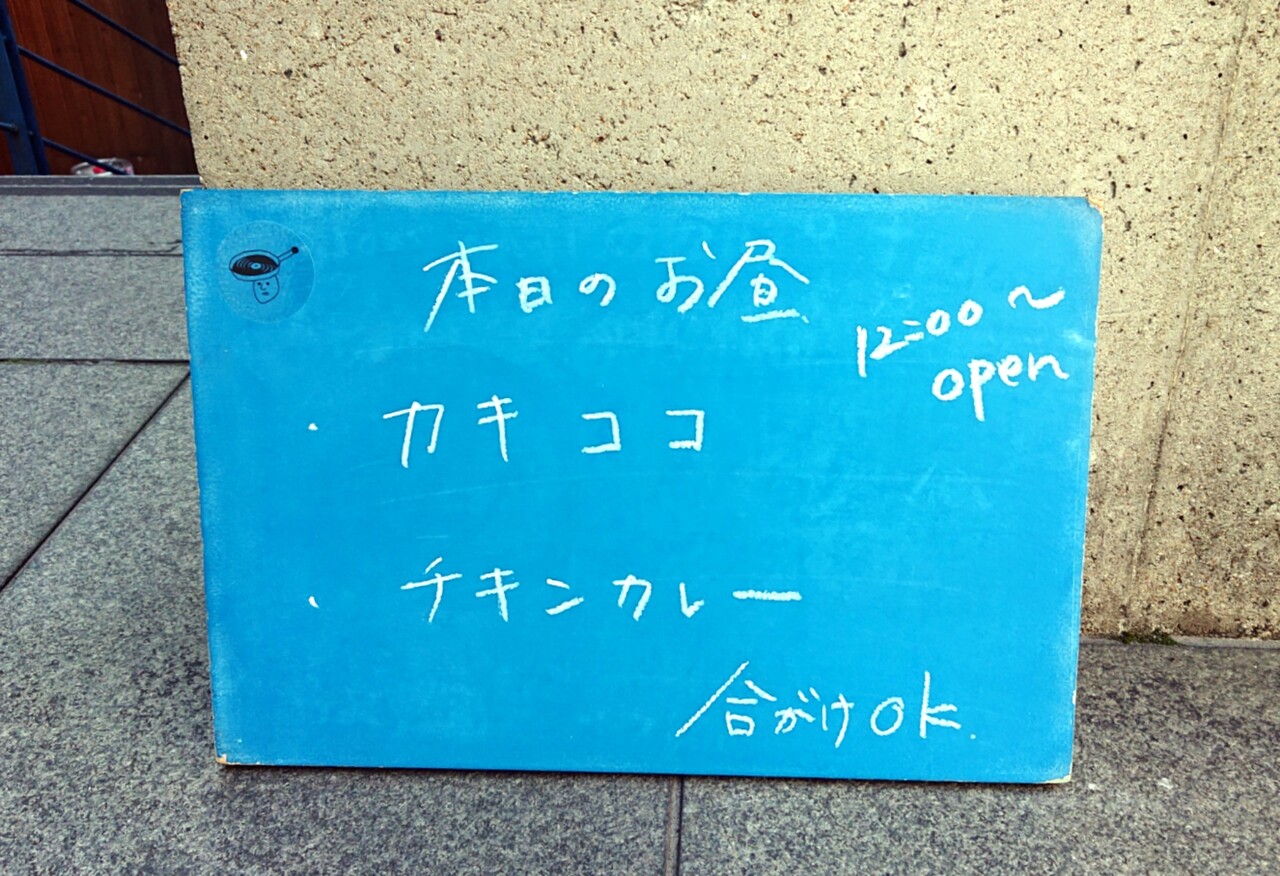 本日のお昼
12:00〜
open
・カキココ
・チキンカレー
合がけOK.